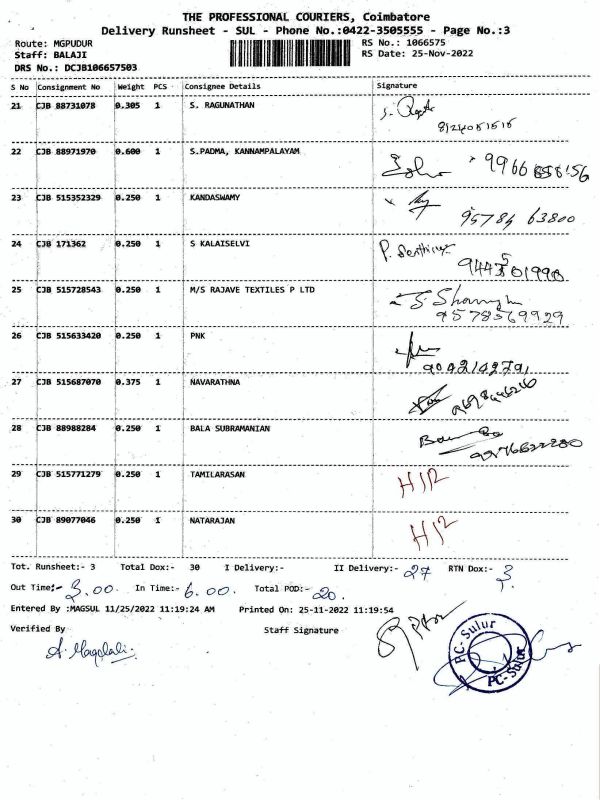 THE PROFESSIONAL COURIERS, Coimbatore
Delivery Runsheet - SUL - Phone No.:0422-3505555 - Page No.:3
Route: MGPUDUR
RS No.: 1066575
Staff: BALAJI
RS Date: 25-Nov-2022
DRS No.: DCJB106657503
S No Consignment No Weight PCS Consignee Details Signature
21 CJB 88731078 0.305 1 S. RAGUNATHAN
22 CJB 88971970 0.600 1 S.PADMA, KANNAMPALAYAM
23 CJB 515352329 0.250 1 KANDASWAMY
95784 63800
24 CJB 171362 0.250 1 S KALAISELVI
25 CJB 515728543 0.250 1 M/S RAJAVE TEXTILES P LTD
9578569929
26 CJB 515633420 0.250 1 PNK
27 CJB 515687070 0.375 1 NAVARATHNA
28 CJB 88988284 0.250 1 BALA SUBRAMANIAN
29 CJB 515771279 0.250 1 TAMILARASAN
30 CJB 89077046 0.250 1 NATARAJAN
Tot. Runsheet:- 3 Total Dox:- 30 I Delivery:- II Delivery:- 27 RTN Dox:- 3
Out Time:- 3.00. In Time:- 6.00. Total POD:- 20.
Entered By :MAGSUL 11/25/2022 11:19:24 AM Printed On: 25-11-2022 11:19:54
Verified By Staff Signature
PC-Sulur
PC-Sulur